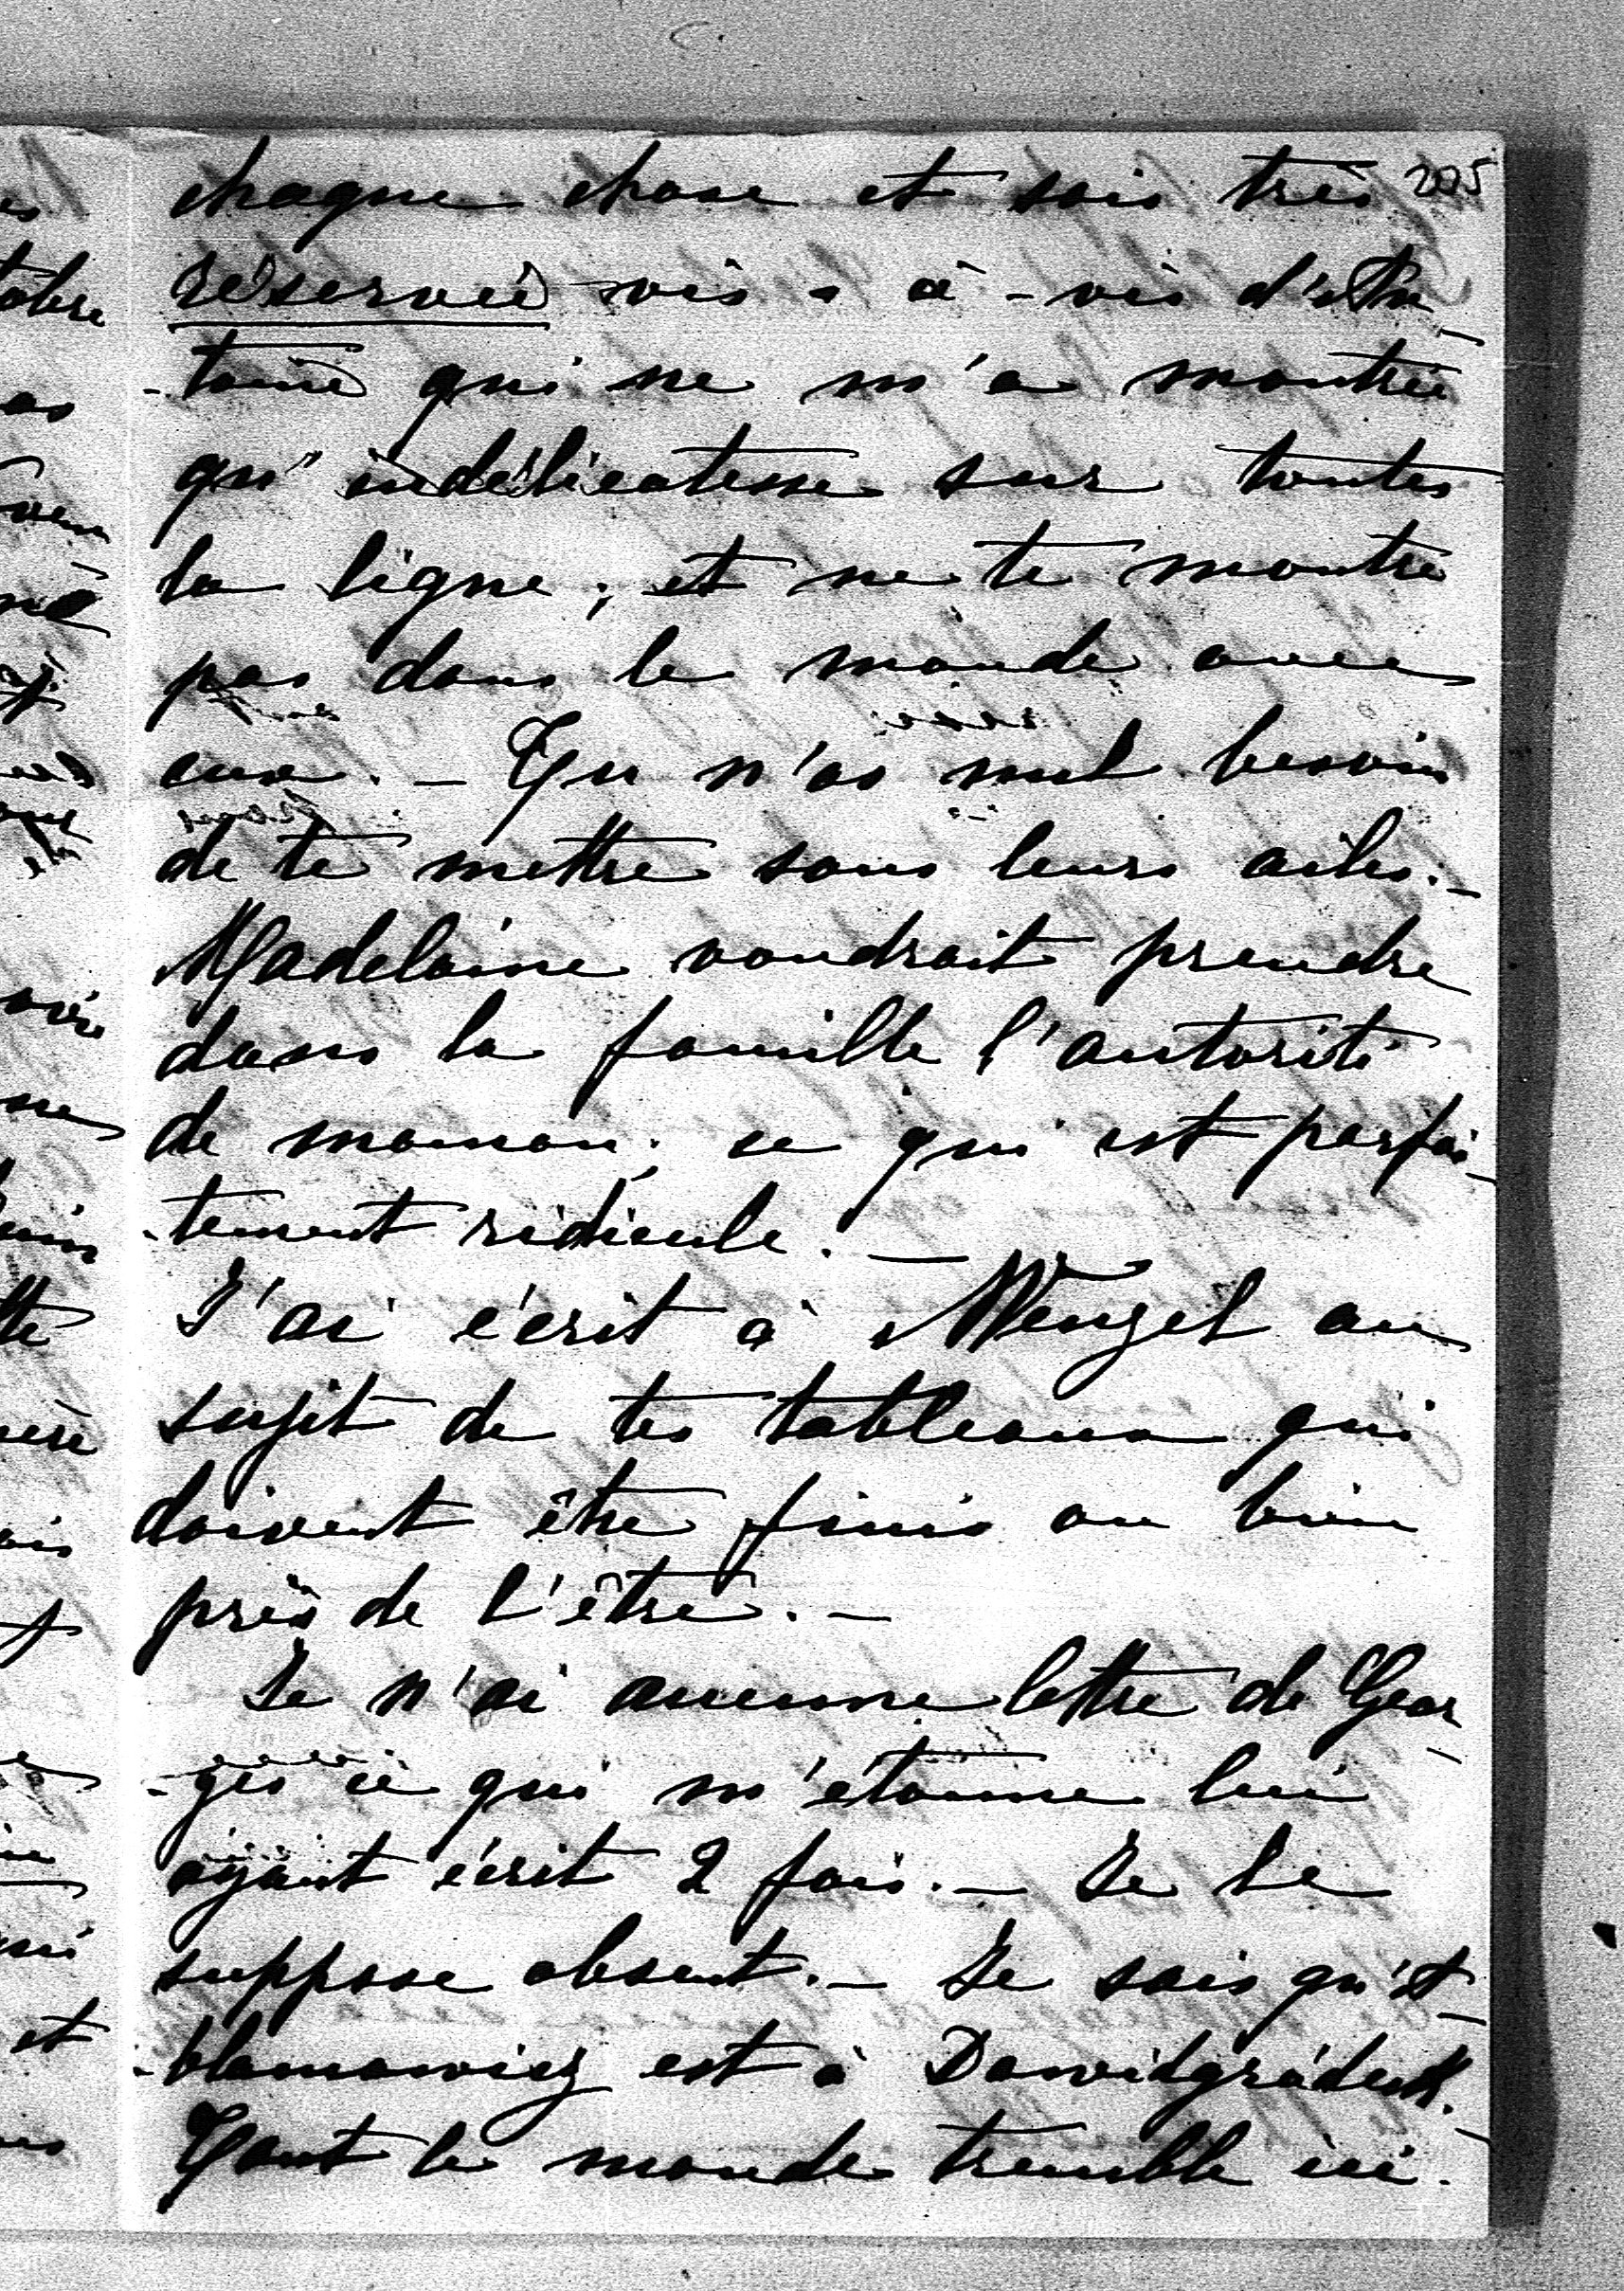 205
chaque chose et sois très
réservée vis-à-vis d'An-
-toine qui ne m'a montrée
qu'indélicatesse sur toutes
la ligne; et ne te montre
pas dans le monde avec
eux. — Tu n'as nul besoin
de te mettre sous leurs ailes. —
Madelaine voudrait prendre
dans la famille l'autorité
de maman; ce qui est parfai-
-tement ridicule. —
J'ai écrit à Wenzel au
sujet de tes tableaux qui
doivent être finis ou bien
près de l'être. —
Je n'ai aucune lettre de Geor-
-ges ce qui m'étonne lui
ayant écrit 2 fois. — Je le
suppose absent. — Je sais qu'A-
-blamowicz est à Dawidgródek. —
Tout le monde tremble ici.